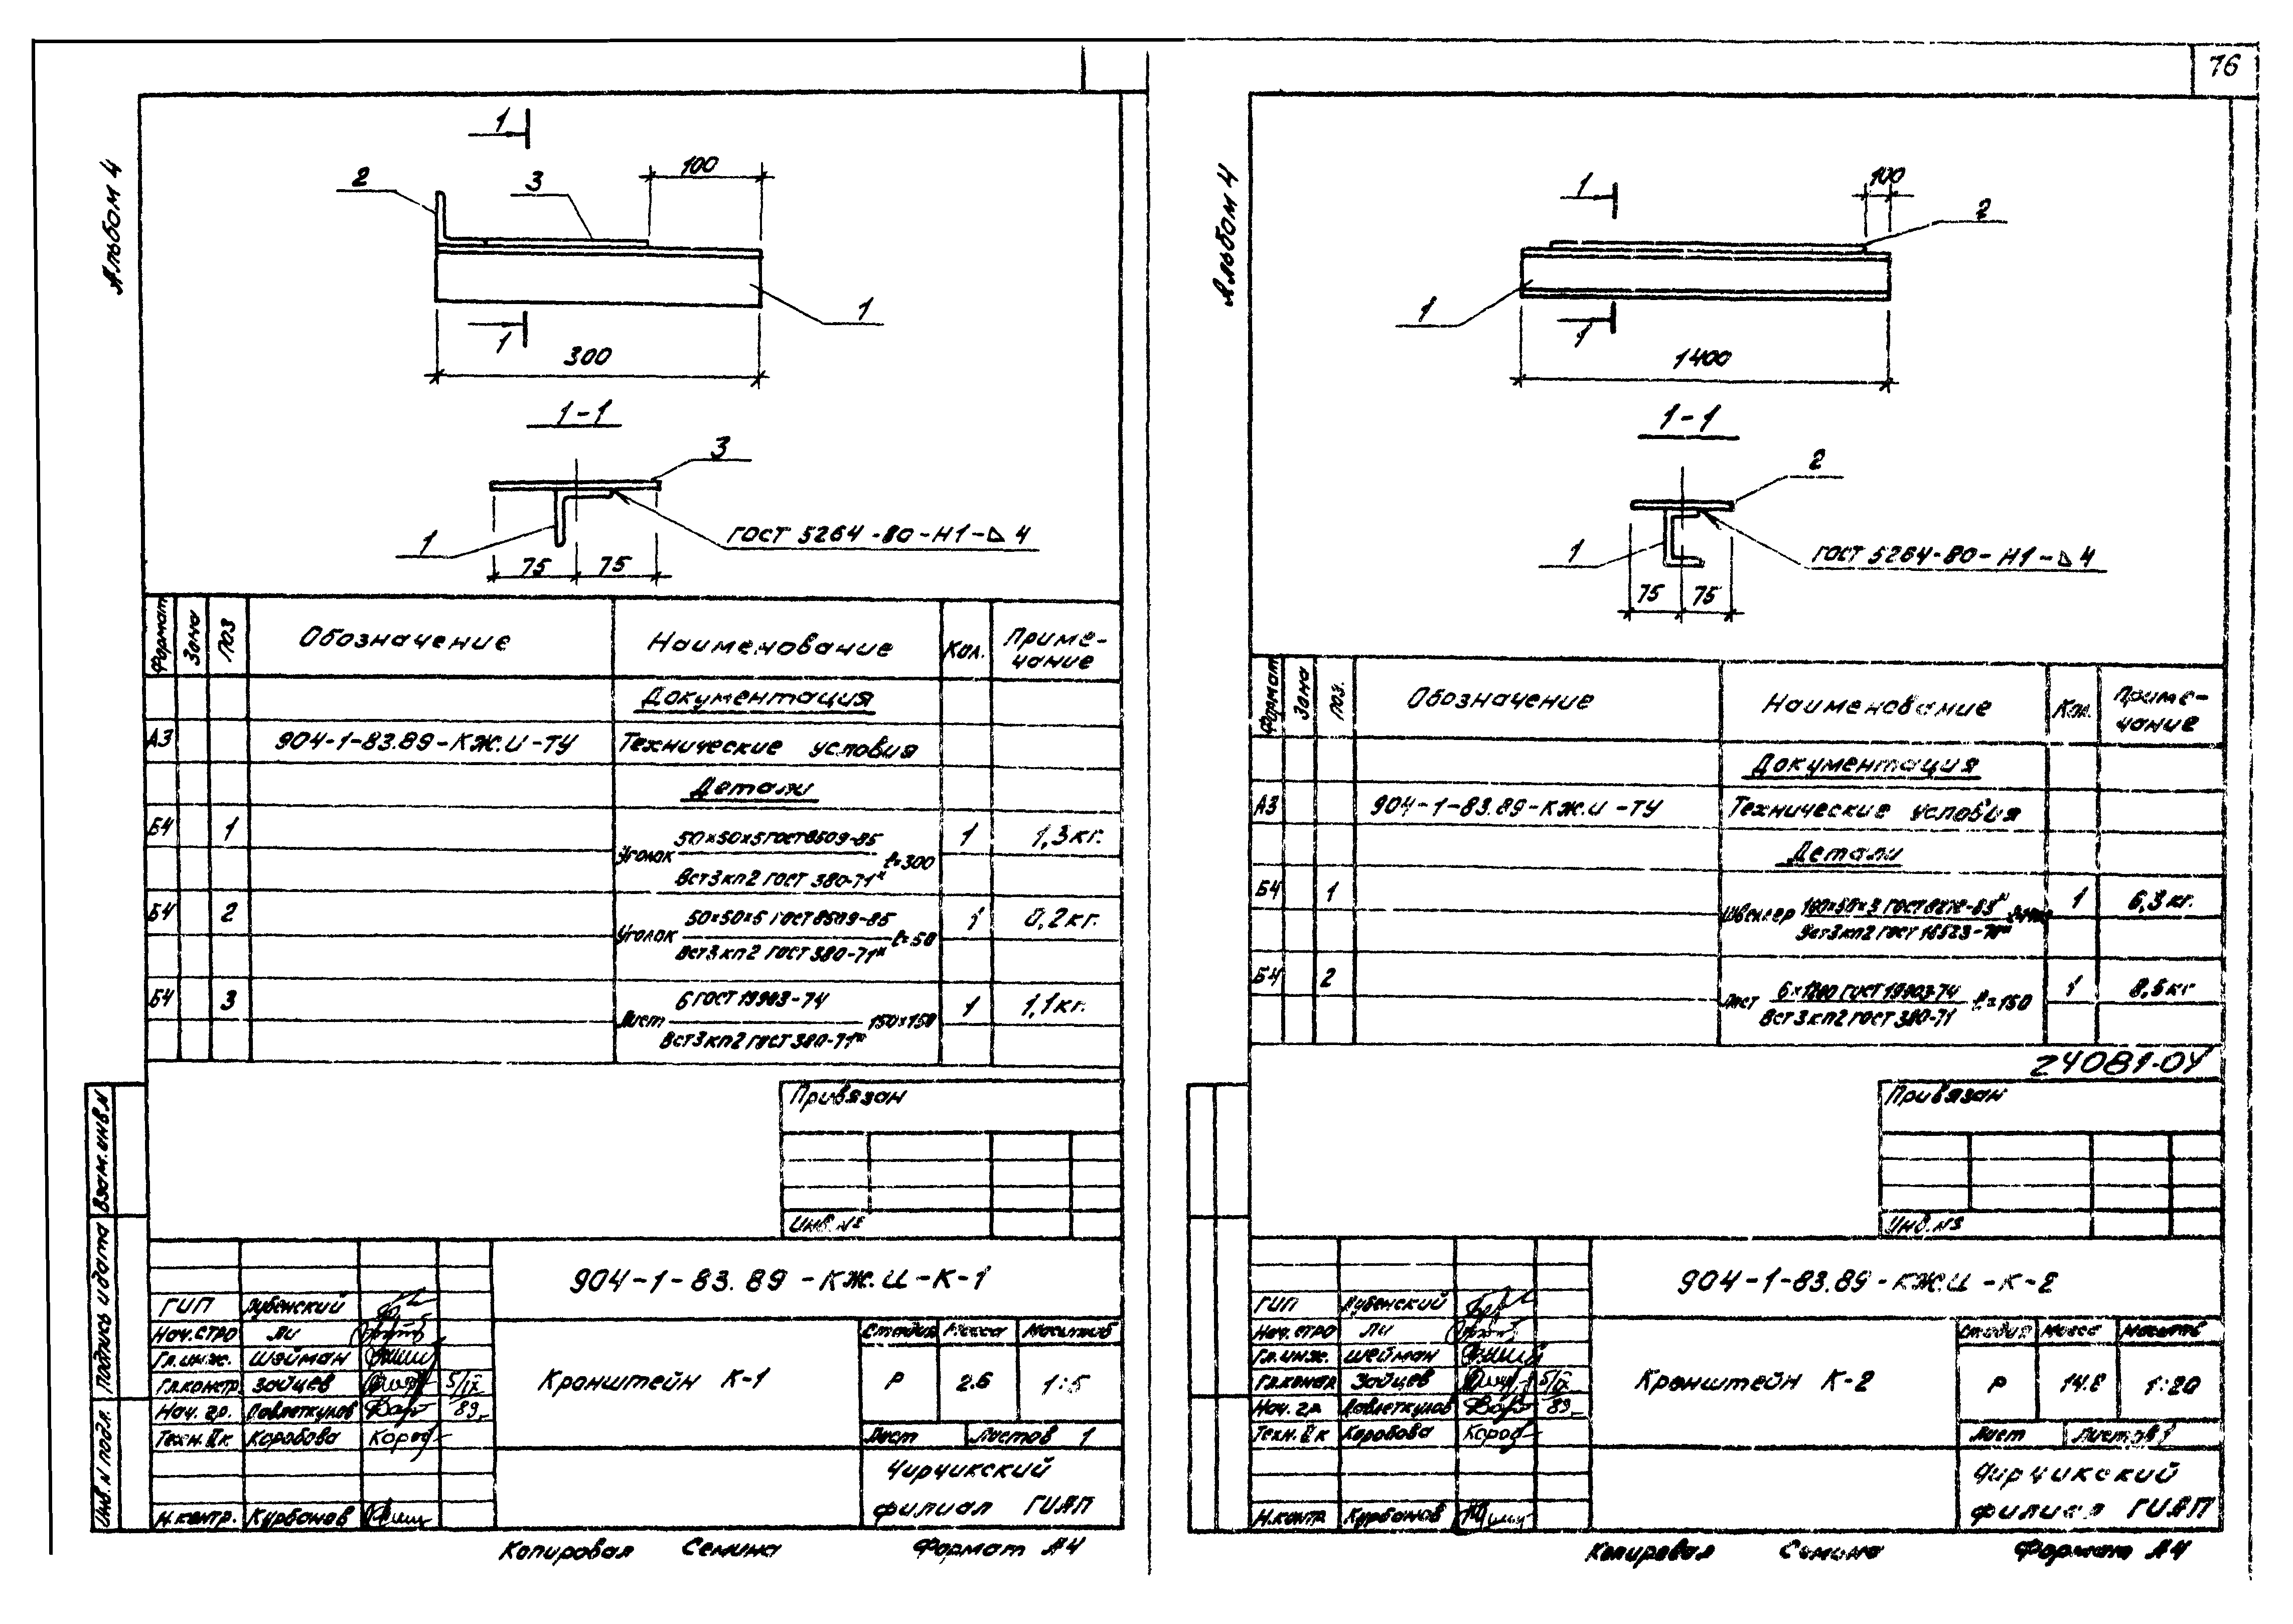 76
Альбом 4
1
2
3
100
1
1
300
1-1
3
1
ГОСТ 5264-80-Н1-⊿4
75 75
Формат Зона Поз Обозначение Наименование Кол. Приме-
чание
Документация
А3 904-1-83.89-КЖ.И-ТУ Технические условия
Детали
Б4 1 Уголок 50×50×5 ГОСТ 8509-85 ℓ=300 1 1,3 кг.
Вст3кп2 ГОСТ 380-71*
Б4 2 Уголок 50×50×5 ГОСТ 8509-85 ℓ=50 1 0,2 кг.
Вст3кп2 ГОСТ 380-71*
Б4 3 Лист 6 ГОСТ 19903-74 150×150 1 1,1 кг.
Вст3кп2 ГОСТ 380-71*
Привязан
Инв.№
Взам.инв.N
Подпись и дата
Инв.N подл.
904-1-83.89-КЖ.И-К-1
ГИП Лубенский
Нач.стро Ли
Гл.инж. Шейман
Гл.констр. Зайцев 5/IX
Нач. гр. Давлеткулов 89
Техн.IIк Коробова
Н.контр. Курбанов
Кронштейн К-1
Стадия Масса Масштаб
Р 2.6 1:5
Лист Листов 1
Чирчикский
филиал ГИАП
Копировал Семина Формат А4
Альбом 4
1
100
2
1
1
1400
1-1
2
1
ГОСТ 5264-80-Н1-⊿4
75 75
Формат Зона Поз. Обозначение Наименование Кол. Приме-
чание
Документация
А3 904-1-83.89-КЖ.И-ТУ Технические условия
Детали
Б4 1 Швеллер 1 6,3 кг.
Б4 2 Лист 6×1200 ГОСТ 19903-74 ℓ=150 1 8,5 кг
Вст3кп2 ГОСТ 380-71
24081-04
Привязан
Инв.№
904-1-83.89-КЖ.И-К-2
ГИП Лубенский
Нач. стро Ли
Гл.инж. Шейман
Гл.констр Зайцев 5/IX
Нач. гр Давлеткулов 89
Техн.IIк Коробова
Н.контр Курбанов
Кронштейн К-2
Стадия Масса Масштаб
Р 14.8 1:20
Лист Листов 1
Чирчикский
филиал ГИАП
Копировал Семина Формат А4